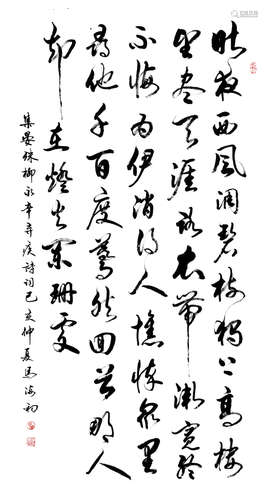 昨夜西风凋碧树独上高楼
望尽天涯路衣带渐宽终
不悔为伊消得人憔悴众里
寻他千百度蓦然回首那人
却在灯火阑珊处
集晏殊柳永辛弃疾诗词己亥仲夏